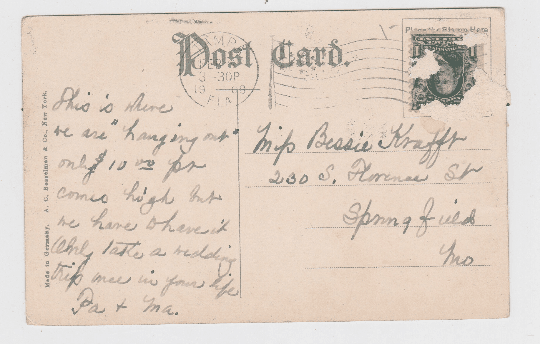 Post Card.
Place the Stamp Here
TAMPA
3-30P
19 09
FLA
This is where
we are "hanging out"
only $10.00 pr
comes high but
we have to have it
Only take a wedding
trip once in your life
Pa & Ma.
Miss Bessie Krafft
230 S. Florence St
Springfield
Mo
Made in Germany. A. C. Bosselman & Co., New York.